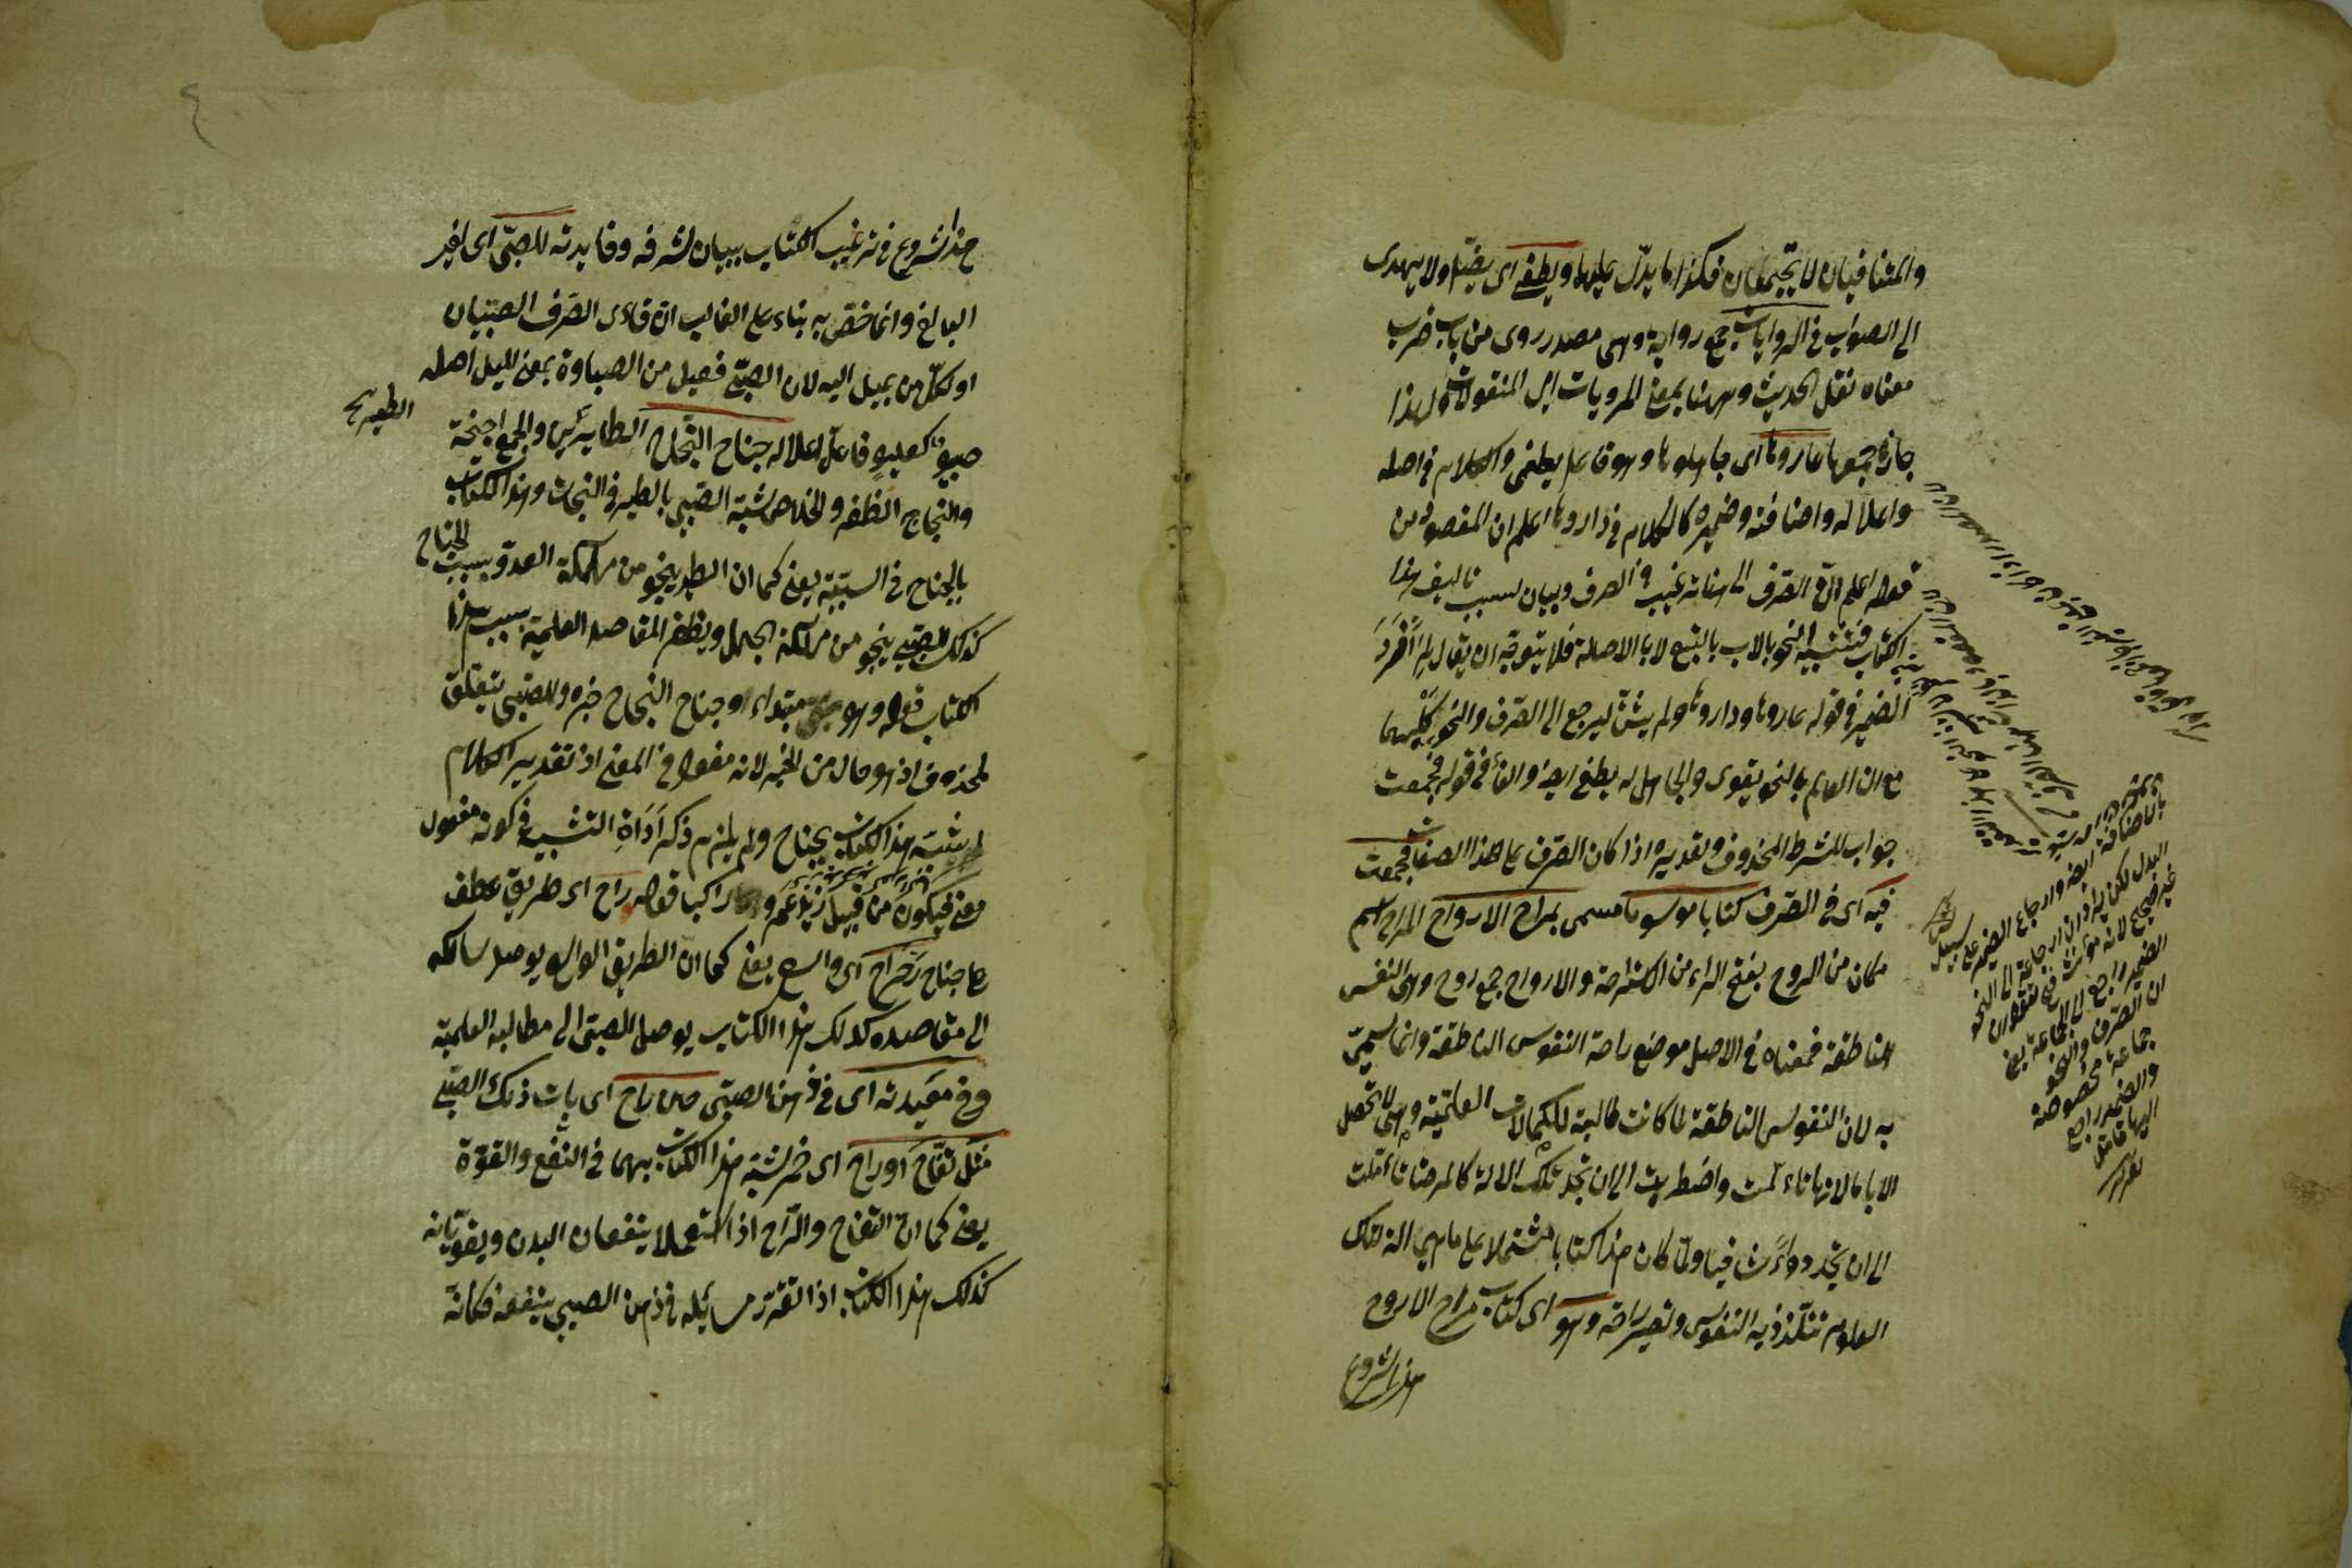 والمتنافيان لا يجتمعان فكذا ما يدل عليهما ويطغى اى يضل ولا يهدى
الى الصواب فى الروايات جمع رواية وهى مصدر روى من باب ضرب
معناه نقل الحديث وههنا بمعنى المرويات اى المنقولات ولهذا
جاز جمعها عاروها اى جاهلوها وهو فاعل يطغى والكلام فى اصله
واعلاله واضافته وضميره كالكلام فى داروها اعلم ان المقصود من
قوله اعلم ان الصرف الى هنا ترغيب فى الصرف وبيان لسبب تاليف هذا
الكتاب فتشبيه النحو بالاب بالتبع لا بالاصالة فلا يتوجه ان يقال لم افرد
الضمير فى قوله عاروها وداروها ولم يثن ليرجع الى الصرف والنحو كليهما
مع ان العالم بالنحو يقوى والجاهل له يطغى ايضا والفاء فى قوله فجمعت
جواب للشرط المحذوف وتقديره اذا كان الصرف على هذا الصفات فجمعت
فيه اى فى الصرف كتابا موسوما مسمى بمراح الارواح المراح اسم
مكان من الروح بفتح الراء من الاستراحة والارواح جمع روح وهى النفس
الناطقة فمعناه فى الاصل موضع راحة النفوس الناطقة وانما سميت
به لان النفوس الناطقة لما كانت طالبة للكمالات العلمية وهى لا تحصل
الا بالالات تاءلمت واضطربت الى ان تجد تلك الالة كالمرضات تاءلمت
الى ان تجد دواء شافيا ولما كان هذا كتابا مشتملا على ما هى الة لتلك
العلوم تتلذذ به النفوس وتصير راحة وهو اى كتاب مراح الاروح
هذا شروع
بالاضافة ايضا وارجاع الضمير على سبيل
البدل لكن يراد ان ارجاعه الى النحو
غير صحيح لانه مؤنث فنقول ان
الضمير راجع الى الجماعة يعنى
ان الصرف والنحو
جماعة مخصوصة
والضمير راجع
اليها فتامل
هذا شروع فى ترغيب الكتاب ببيان لشرفه وفايدته للصبى اى لغير
البالغ وانما خص به بناء على الغالب ان قارى الصرف الصبيان
او لكل من يميل اليه لان الصبى فعيل من الصباوة بمعنى الميل اصله
صبيو كعليو فاعل اعلاله جناح النجاح الطايرين والجمع اجنحة
والنجاح الظفر والخلاص شبه الصبى بالطير فى النجات وهذا الكتاب
بالجناح فى السببية يعنى كما ان الطير ينجو من مهلكة العدو بسبب الجناح
كذلك الصبى ينجو من مهلكة الجهل ويظفر المقاصد العلمية بسبب هذا
الكتاب قوله وهو مبتداء وجناح النجاح خبره وللصبى يتعلق
لمحذوف اذ هو حال من الخبر لانه مفعول فى المعنى اذ تقدير الكلام
لشبه هذا الكتاب بجناح ولم يلزم ذكر اداة التشبيه فى كونه مفعول
معنى فيكون من قبيل زيد عمرو راكبا قوله راح اى طريق عطف
على جناح رحراح اى واسع يعنى كما ان الطريق الواسع يوصل سالكه
الى مقاصده كذلك هذا الكتاب يوصل الصبى الى مطالبه العلمية
وفى معيدته اى فى ذهن الصبى حين راح اى بات ذلك الصبى
مثل تفاح او راح اى خمر شبه هذا الكتاب بهما فى النفع والقوة
يعنى كما ان التفاح والراح اذا استعملا ينفعان البدن ويقويانه
كذلك هذا الكتاب اذا تقرر مسائله فى ذهن الصبى ينفعه فكانه